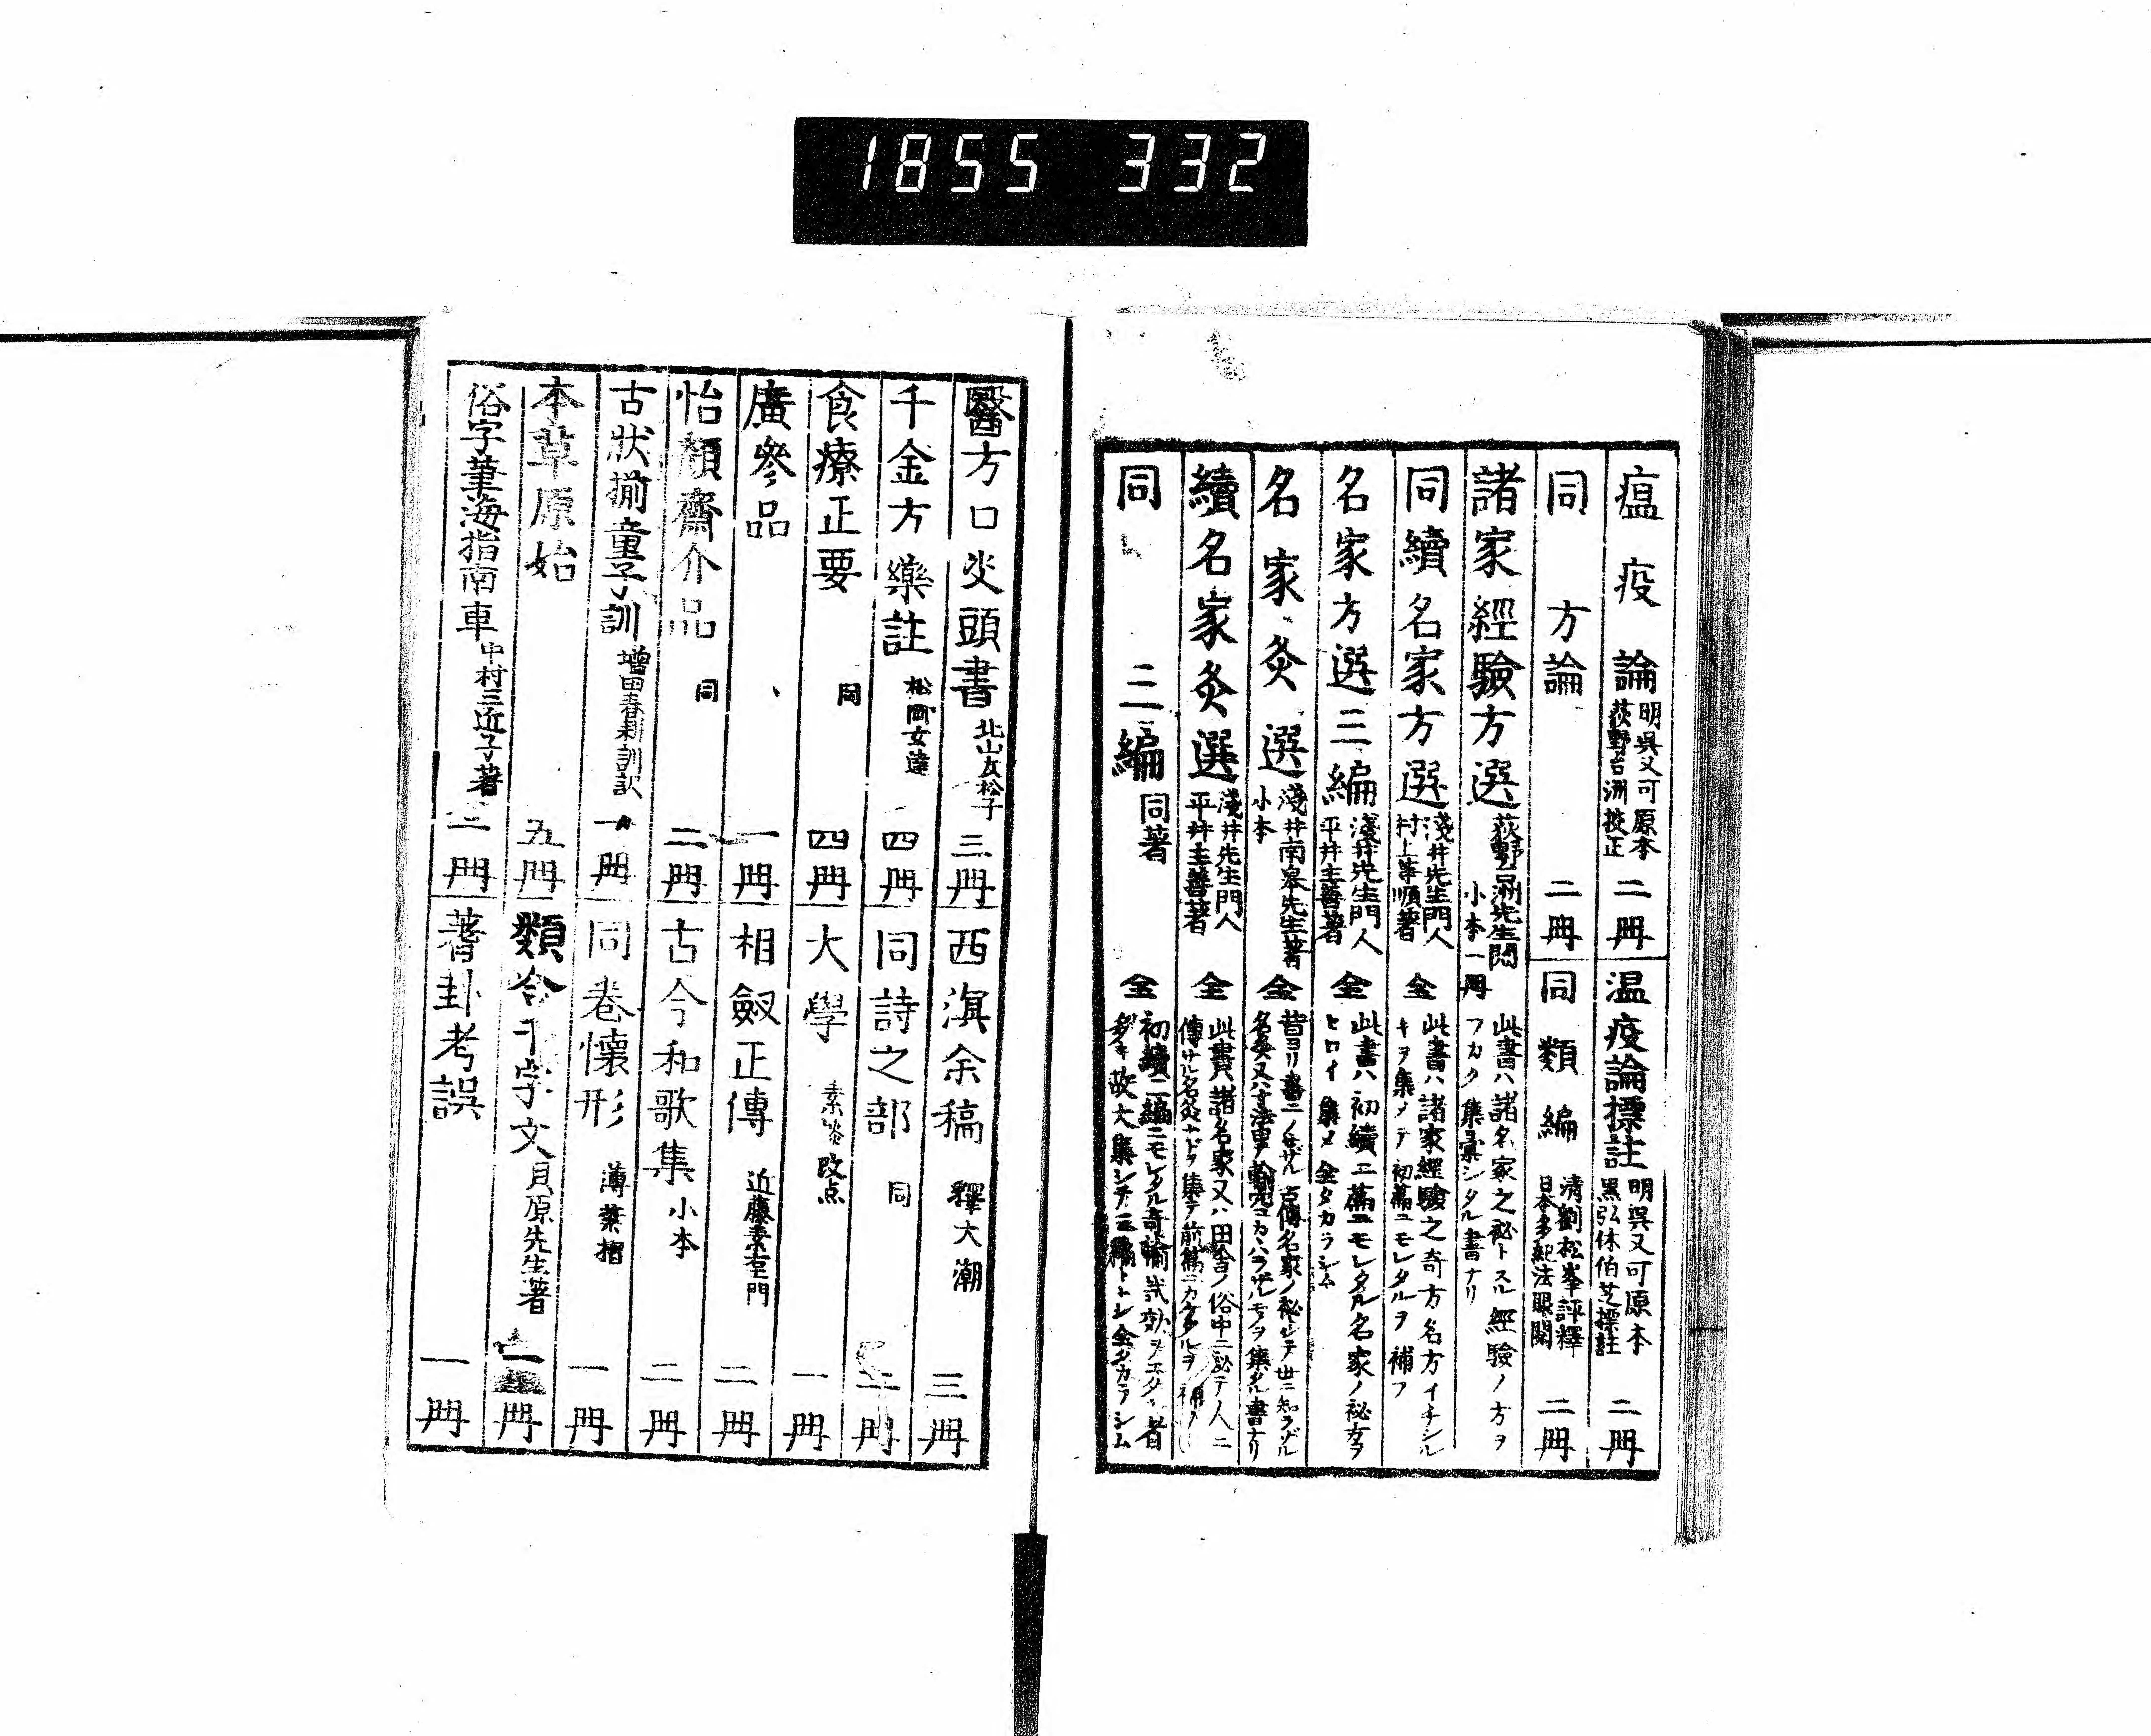 1855 332
瘟疫論 明呉又可原本 荻野台洲挍正 二冊
温疫論標註 明呉又可原本 黒弘休伯芝標註 二冊
同 方論 二冊
同類編 清劉松峯評釋 日本多紀法眼閲 二冊
諸家經驗方選 荻野台洲先生閲 小本一冊 此書ハ諸名家之祕トスル經驗ノ方ヲフカク集彙シタル書ナリ
同續名家方選 淺井先生門人 村上等順著 全 此書ハ諸家經驗之奇方名方イチシルキヲ集メテ初篇ニモレタルヲ補フ
名家方選三編 淺井先生門人 平井主善著 全 此書ハ初續二篇ニモレタル名家ノ祕方ヲヒロイ集メ全タカラシム
名家灸選 淺井南皋先生著 小本 全 昔ヨリ書ニノセザル古傳名家ノ秘シテ世ニ知ラザル
續名家灸選 淺井先生門人 平井主善著 全 此書ハ諸名家又ハ田舎ノ俗中ニ祕テ人ニ
同 三編 同著 全 初續二編ニモレタル奇輸
醫方口訣頭書 北山友松子 三冊
西溟余稿 釋大潮 三冊
千金方藥註 松岡玄達 四冊
同詩之部 同 二冊
食療正要 同 四冊
大學 素淡改点 一冊
廣參品 一冊
相劔正傳 近藤素左門 二冊
怡顏齋介品 同 二冊
古今和歌集 小本 二冊
古状揃童子訓 増田春耕訓訳 一冊
同卷懷形 薄葉摺 一冊
本草原始 五冊
類合千字文 貝原先生著 一冊
俗字筆海指南車 中村三近子著 二冊
蓍卦考誤 一冊